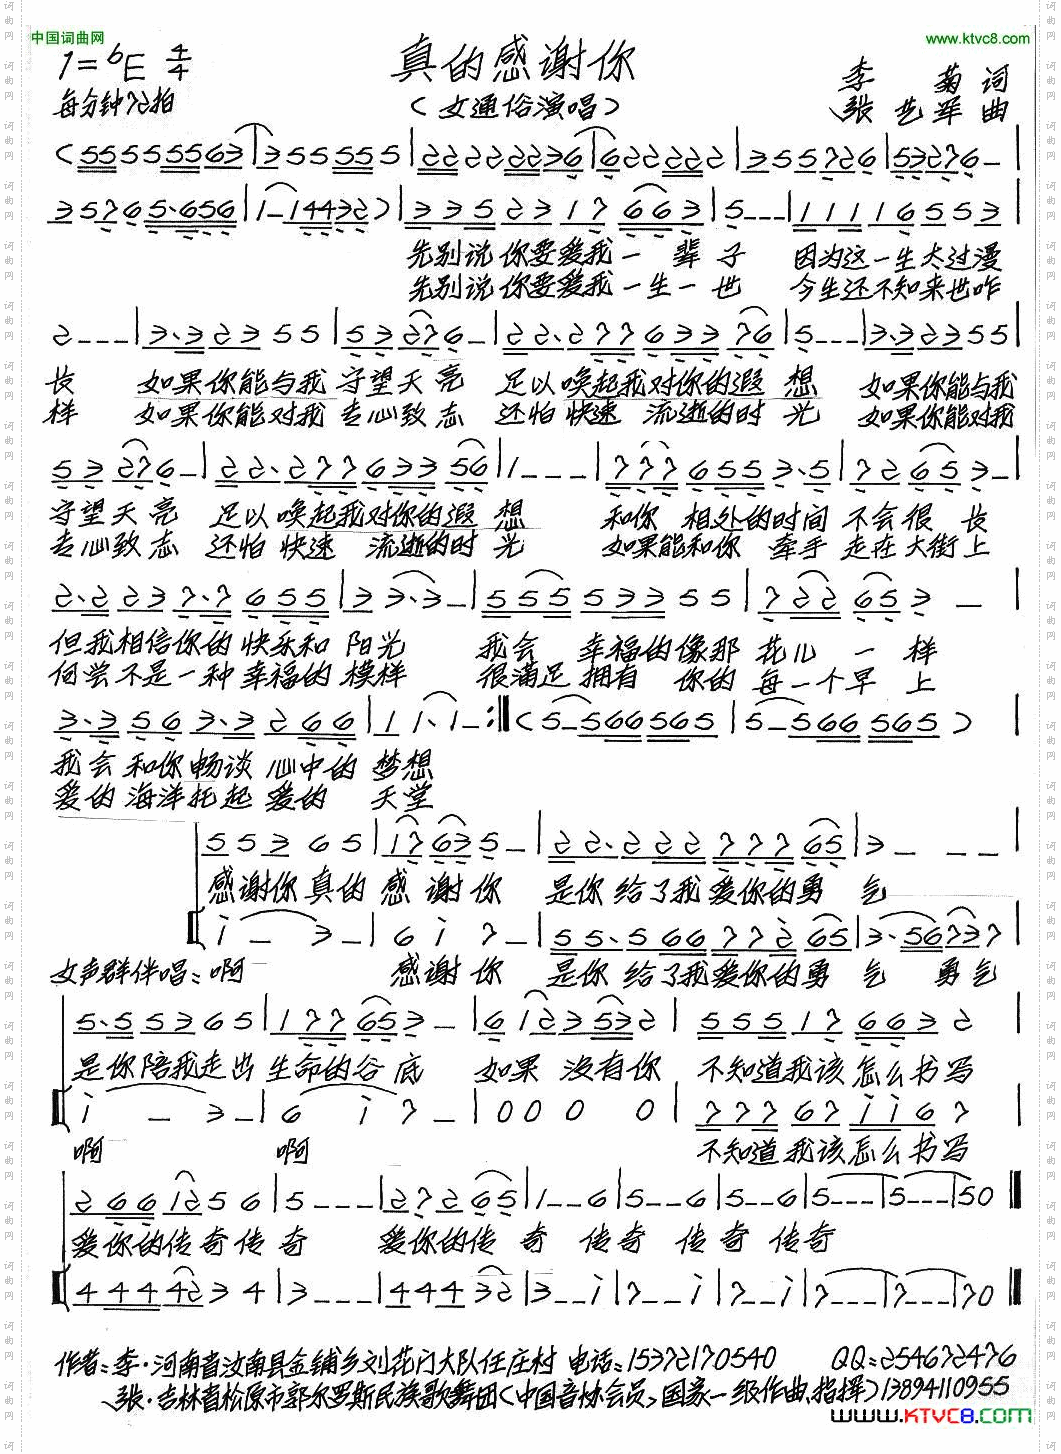 中国词曲网
www.ktvc8.com
1=bE 4/4
真的感谢你
李 菊 词
每分钟72拍
(女通俗演唱)
张艺军 曲
(55555563|355555|22222236|6222222|3557 26|53276-|
35765·656|1-14432)|335231 7663|5---|11116553|
先别说你要爱我一 辈 子 因为这一生太过漫
先别说你要爱我一生一 世 今生还不知来世咋
2---|3·32355|53276-|22·277633 76|5---|3·32355|
长 如果你能与我 守望天 亮 足以唤起我对你的遐 想 如果你能与我
样 如果你能对我 专心致 志 还怕 快速 流逝的时 光 如果你能对我
53276-|22·277633 56|1---|7776553·5|72653-|
守望天 亮 足以唤起我对你的遐 想 和你 相处的时间 不会很 长
专心致 志 还怕 快速 流逝的时 光 如果能和你 牵手 走在大街上
2·2237·7655|33·3-|55553355|722653--|
但我相信你的 快乐和 阳光 我会 幸福的像那 花儿 一 样
何尝不是一种 幸福的 模样 很满足 拥有 你的 每一个早 上
3·3563·3266|11·1-:‖(5-566565|5-566565)|
我会 和你 畅谈 心中的 梦想
爱的 海洋托起 爱的 天堂
55365|17635-|22·222777 65|3---|
感谢你真的 感 谢 你 是你 给了我 爱你的勇 气
i-3-|6i7-|55·56677265|3·56737|
女声群伴唱:啊 感谢 你 是你 给了我爱你的勇 气 勇气
5·55365|177653-|6123532|5551 76632|
是你陪我走出 生命的谷 底 如果 没有你 不知道我该怎么书写
i-3-|6i7-|0000|77767ii67|
啊 啊 不知道我该怎么书写
2661256|5---|272 65|1--6|5--6|5--6|5---|5---|50‖
爱你的传奇传 奇 爱你的传 奇 传奇 传奇 传奇
4444234|3---|44432|3--i|7--i|7--i|7---|7---|70‖
作者:李·河南省汝南县金铺乡刘花门大队任庄村 电话:15372170540 QQ:254672476
张·吉林省松原市郭尔罗斯民族歌舞团(中国音协会员,国家一级作曲、指挥)13894110955
www.KTVC8.com